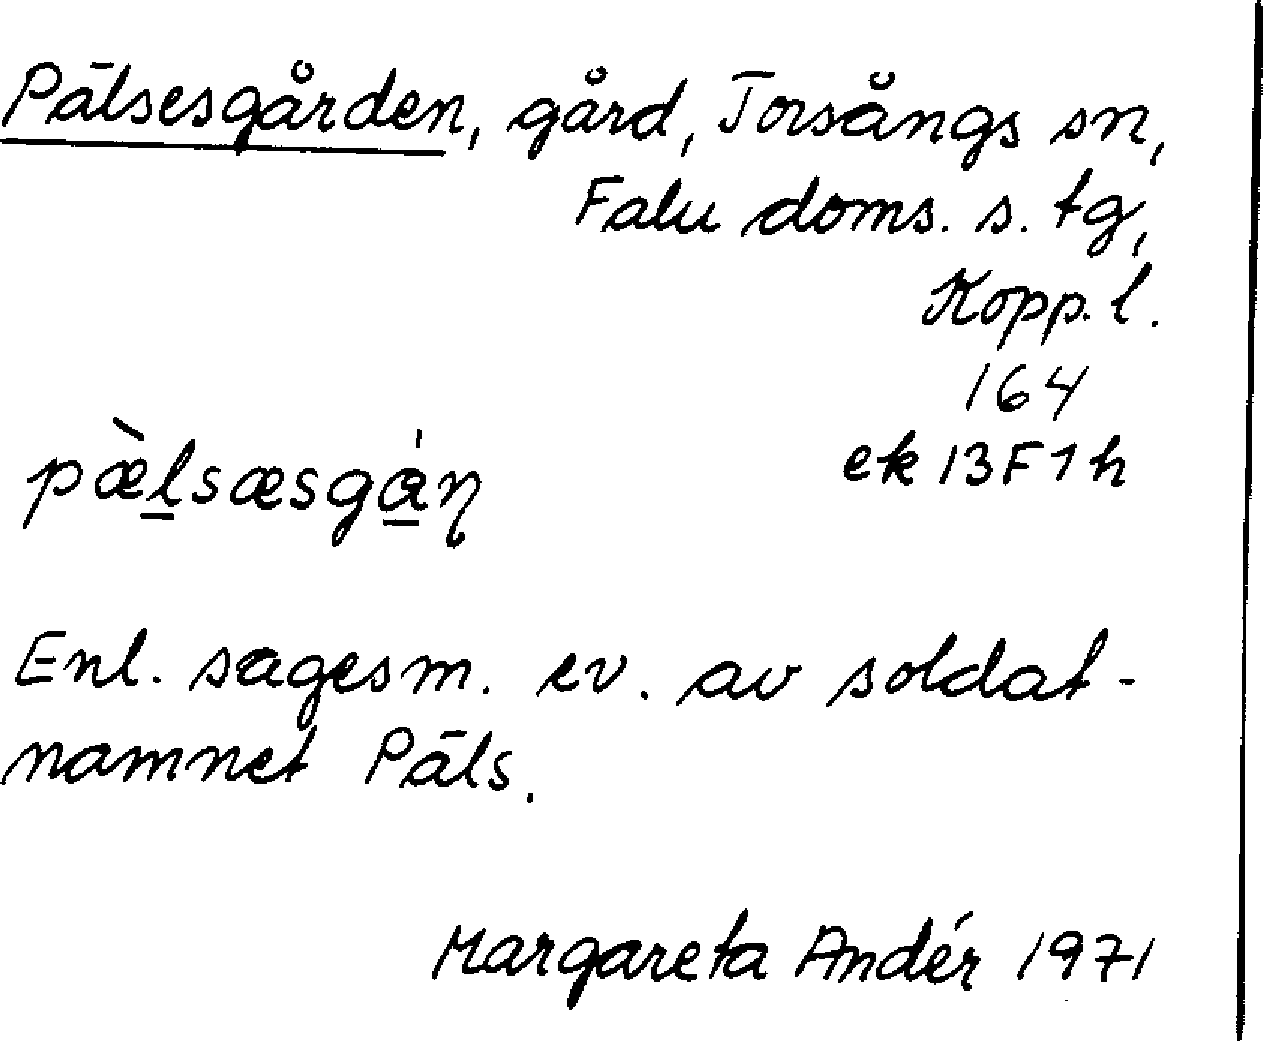 Pälsesgården, gård, Torsångs sn,
Falu doms. s. tg,
Kopp. l.
164
ek 13F1h
pæ̀l̲sæsgá̲ɳ
Enl. sagesm. ev. av soldat-
namnet Päls.
Margareta Andér 1971